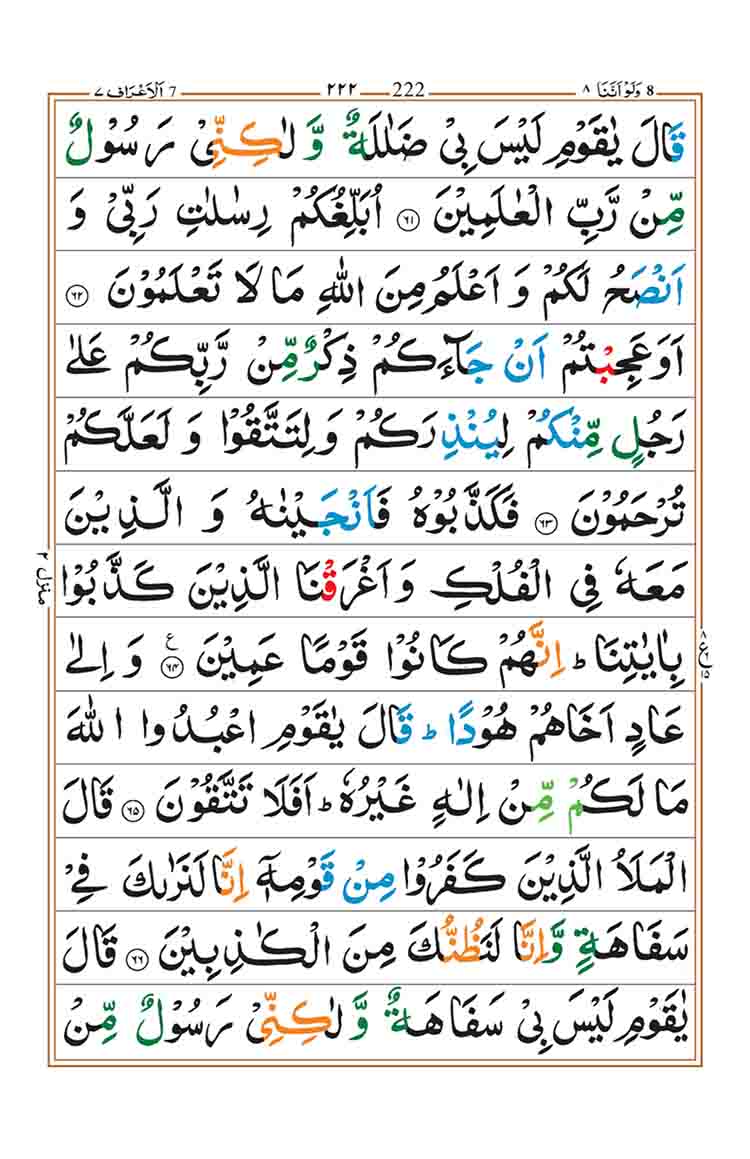 7 اَلْاَعْرَاف ۷ ۲۲۲ 222 8 وَلَوْ اَنَّنَا ۸
قَالَ يٰقَوْمِ لَيْسَ بِيْ ضَلٰلَةٌ وَّ لٰكِنِّيْ رَسُوْلٌ
مِّنْ رَّبِّ الْعٰلَمِيْنَ ۶۱ اُبَلِّغُكُمْ رِسٰلٰتِ رَبِّيْ وَ
اَنْصَحُ لَكُمْ وَ اَعْلَمُ مِنَ اللّٰهِ مَا لَا تَعْلَمُوْنَ ۶۲
اَوَعَجِبْتُمْ اَنْ جَآءَكُمْ ذِكْرٌ مِّنْ رَّبِّكُمْ عَلٰى
رَجُلٍ مِّنْكُمْ لِيُنْذِرَكُمْ وَ لِتَتَّقُوْا وَ لَعَلَّكُمْ
تُرْحَمُوْنَ ۶۳ فَكَذَّبُوْهُ فَاَنْجَيْنٰهُ وَ الَّذِيْنَ
مَعَهٗ فِي الْفُلْكِ وَ اَغْرَقْنَا الَّذِيْنَ كَذَّبُوْا
بِاٰيٰتِنَا ؕ اِنَّهُمْ كَانُوْا قَوْمًا عَمِيْنَ ۶۴ ع وَ اِلٰى
عَادٍ اَخَاهُمْ هُوْدًا ؕ قَالَ يٰقَوْمِ اعْبُدُوا اللّٰهَ
مَا لَكُمْ مِّنْ اِلٰهٍ غَيْرُهٗ ؕ اَفَلَا تَتَّقُوْنَ ۶۵ قَالَ
الْمَلَاُ الَّذِيْنَ كَفَرُوْا مِنْ قَوْمِهٖۤ اِنَّا لَنَرٰىكَ فِيْ
سَفَاهَةٍ وَّ اِنَّا لَنَظُنُّكَ مِنَ الْكٰذِبِيْنَ ۶۶ قَالَ
يٰقَوْمِ لَيْسَ بِيْ سَفَاهَةٌ وَّ لٰكِنِّيْ رَسُوْلٌ مِّنْ
منزل ۲